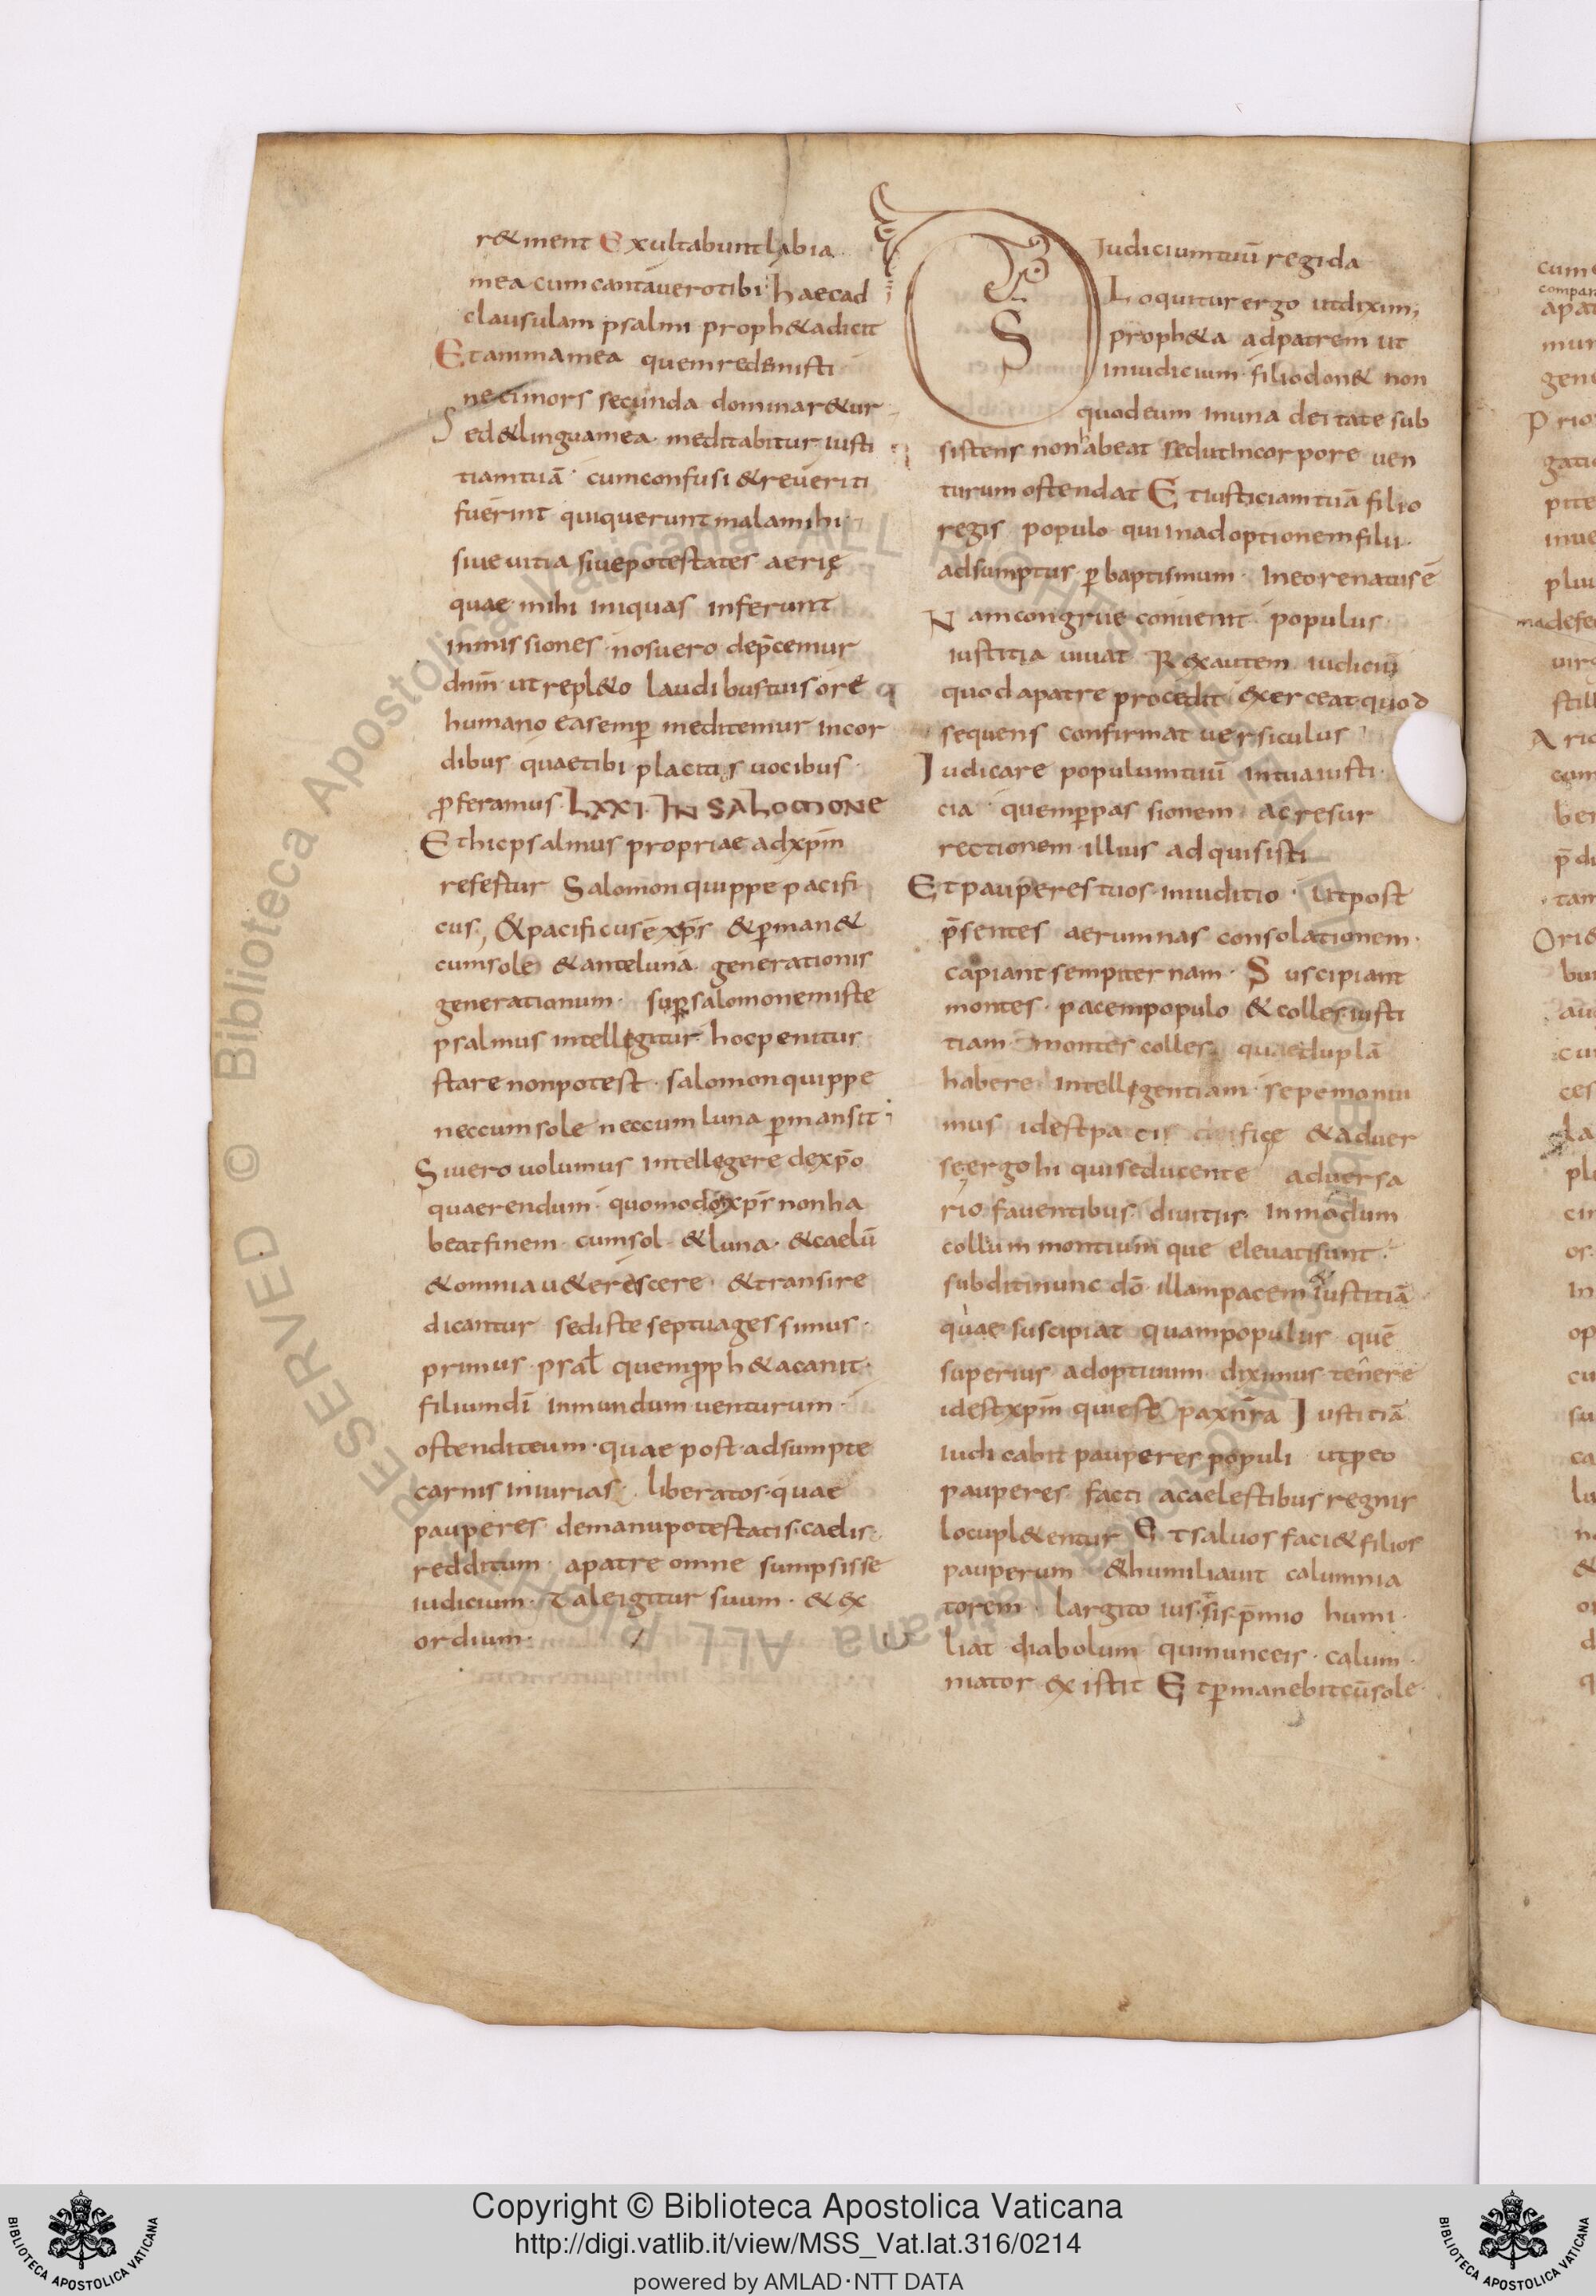 r&ment Exultabunt labia
mea cum cantavero tibi· haec ad
clausulam psalmi proph&a dicit
Et anima mea quem redemisti
nec mors secunda dominar&ur
Sed & lingua mea· meditabitur iusti
tiam tuā· cum confusi & reveriti
fuerint qui querunt mala mihi·
sive vitia sive potestates aerię
quae mihi iniquas inferunt
inmissiones· nos vero dep̄cemur
dnm̄ ut repl&o laudibus tuis ore
humano ea semp̄ meditemur in cor
dibus quae tibi placitis vocibus
p̄feramus· LXXI· IN SALOMONE
Et hic psalmus propriae ad xpm̄
refertur Salomon quippe pacifi
cus, & pacificus ē xps̄ & p̄man&
cum sole & ante luna· generationis
generationum· sup̄ salomonem iste
psalmus intellegitur· hoc penitus
stare non potest· salomon quippe
nec cum sole nec cum luna p̄mansit·
Si vero volumus intellegere de xp̄o
quaerendum· quomodo xps̄ non ha
beat finem· cum sol & luna· & caelū
& omnia v&erescere· & transire
dicantur sed iste septuagessimus·
primus· psal̄ quem p̄ph&a canit·
filium dī in mundum venturum·
ostendit eum· quae post adsumpte
carnis iniurias· liberatos· quae
pauperes de manu potestatis· caelis·
redditum· a patre omne sumpsisse
iudicium· Tale igitur suum· & ex
ordium·
DS
Iudicium tuū regi da
Loquitur ergo ut diximꝰ
proph&a ad patrem ut
in iudicium· filio don& non
quod eum in una deitate sub
sistens non habeat sed ut in corpore ven
turum ostendat Et iusticiam tuā filio
regis populo qui in adoptionem filii·
adsumptus· p̄ baptismum· In eo renatus ē
Nam congrue convenit· populus·
iustitia vivat Rex autem iudiciū
quod a patre procedit exerceat quod
sequens confirmat versiculus
Iudicare populum tuū in tua iusti·
cia· quem p̄ passionem ac resur
rectionem· illius adquisisti
Et pauperes tuos· in iuditio· Ut post
p̄sentes aerumnas consolationem·
capiant sempiternam· Suscipiant
montes· pacem populo & colles iusti
tiam montes colles quae duplā
habere intellegentiam· sepe monui
mus id est pacis & adver
se ergo hi qui seducente adversa
rio faventibus divitiis· In modum
collium montium que elevati sunt·
subditi nunc dō illam pacem & iustitiā
quae suscipiat quam populus quē
superius adoptivum diximus tenere
id est xpm̄ qui est pax nr̄a Iustitiā
iudicabit pauperes populi ut p̄ eo
pauperes facti a caelestibus regnis
locupl&entur Et salvos faci& filios
pauperum & humiliavit calumnia
torem· largito ius· p̄mio humi·
liat diabolum qui nunc eis· calum·
niator existit Et p̄manebit cū sole
Copyright © Biblioteca Apostolica Vaticana
http://digi.vatlib.it/view/MSS_Vat.lat.316/0214
powered by AMLAD·NTT DATA